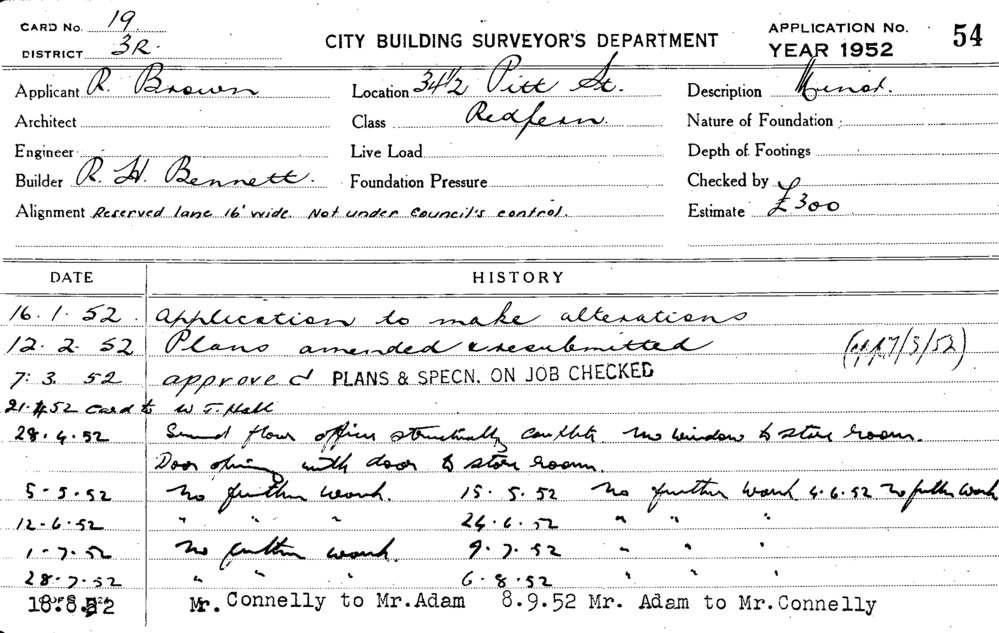 CARD No. 19
DISTRICT 3R.
CITY BUILDING SURVEYOR'S DEPARTMENT
APPLICATION No. 54
YEAR 1952
Applicant R. Brown Location 34½ Pitt St. Description Minor.
Architect Class Redfern. Nature of Foundation:
Engineer Live Load Depth of Footings
Builder R. H. Bennett. Foundation Pressure Checked by
Alignment Reserved lane 16' wide. Not under Council's control. Estimate £300
DATE HISTORY
16.1.52. Application to make alterations
12.2.52 Plans amended & resubmitted 7/3/52)
7.3.52 approved PLANS & SPECN. ON JOB CHECKED
21.4.52 Card to W T. Hall
28.4.52 Ground floor offices structurally complete. No window to store room.
Door opening with door to store room.
5.5.52 No further work. 15.5.52 No further work 4.6.52 No further work
12.6.52 " " " 24.6.52 " " "
1.7.52 No further work. 9.7.52 " " "
28.7.52 " " " 6.8.52 " " "
18.8.52 Mr. Connelly to Mr.Adam 8.9.52 Mr. Adam to Mr.Connelly